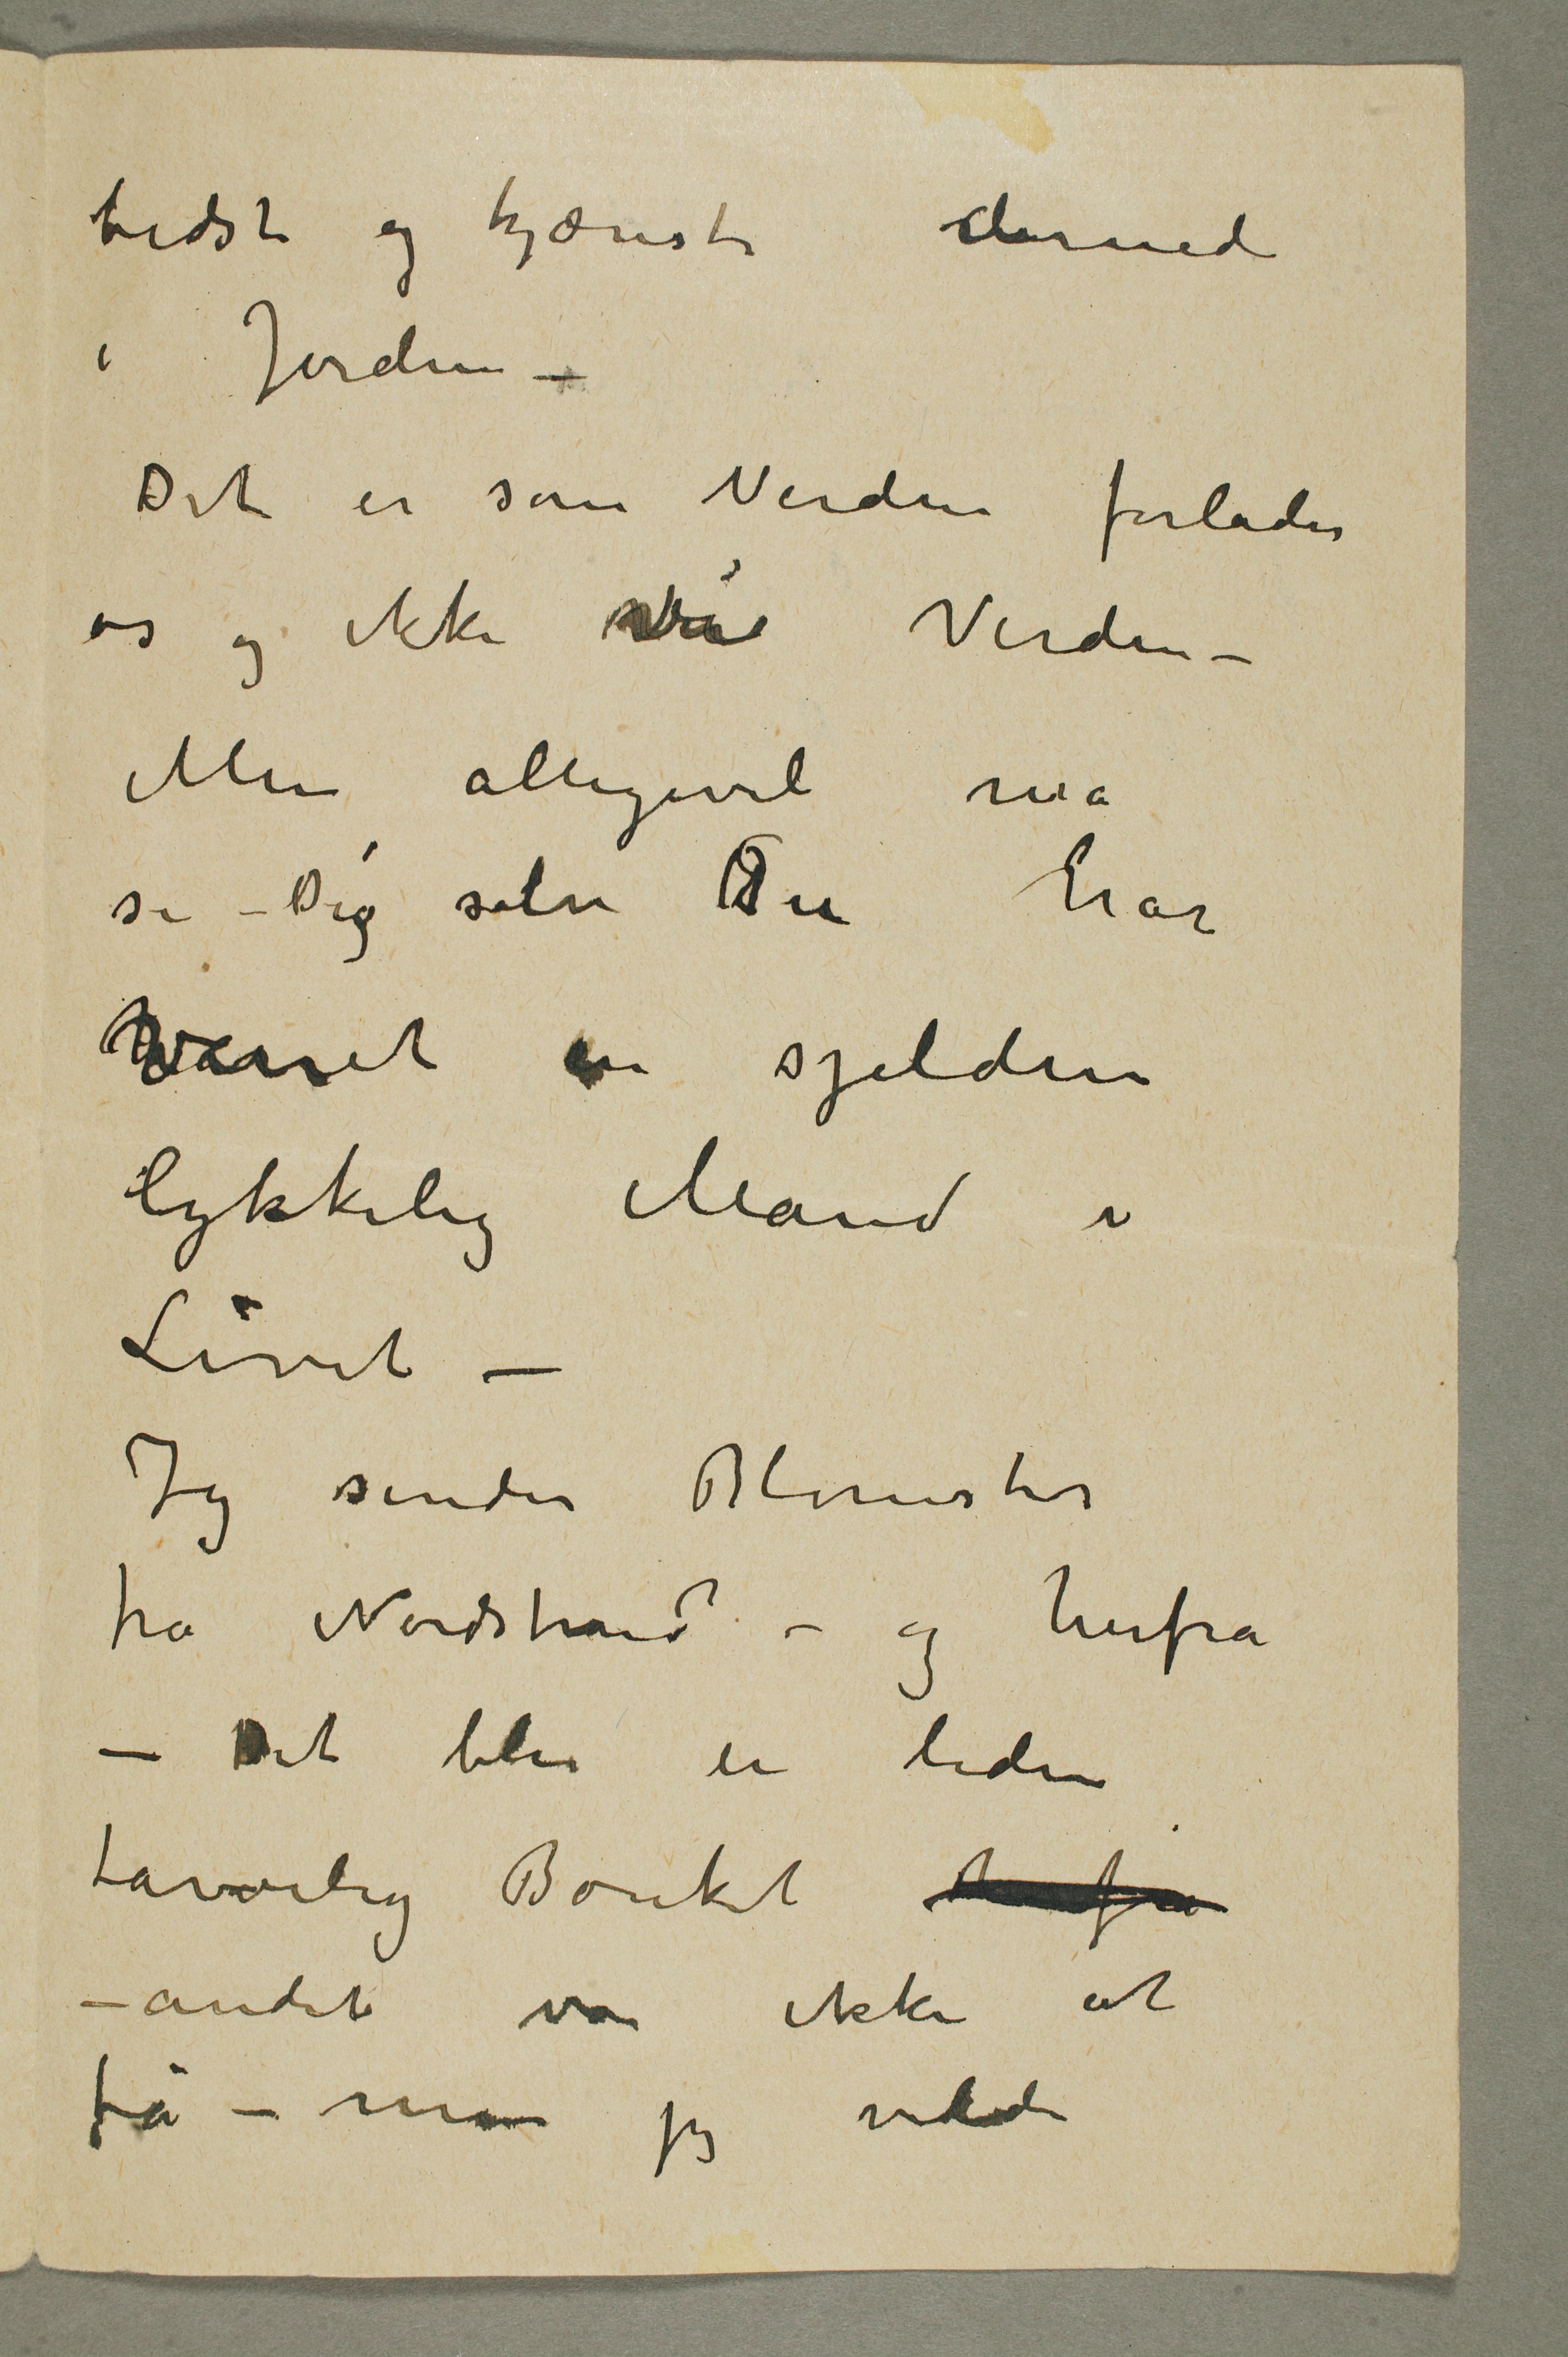 bedste og kjæreste dernede
i Jorden –
Det er som Verden forlader
os og ikke vi Verden –
Men alligevel må
se – Dig selv Du har
været en sjelden
lykkelig Mand i
Livet –
Jeg sender Blomster
fra Nordstrand – og herfra
– Det blir en liden
tarvelig Bouket herfra
– andet var ikke at
få – men jeg vilde